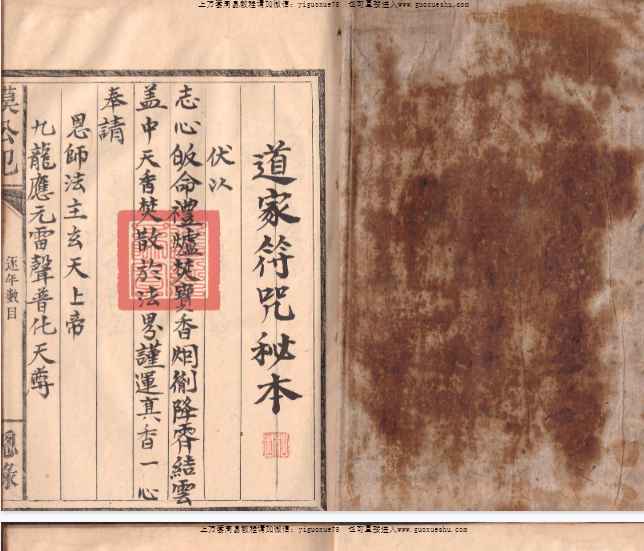 上万套周易教程请加微信：yiguoxue78 也可直接进入www.guoxueshu.com
道家符咒秘本
伏以
志心皈命禮爐焚寶香烟降霄結雲
盖中天香焚散於法界謹運真香一心
奉請
恩師法主玄天上帝
九龍應元雷聲普化天尊
逐年數目
上万套周易教程请加微信：yiguoxue78 也可直接进入www.guoxueshu.com